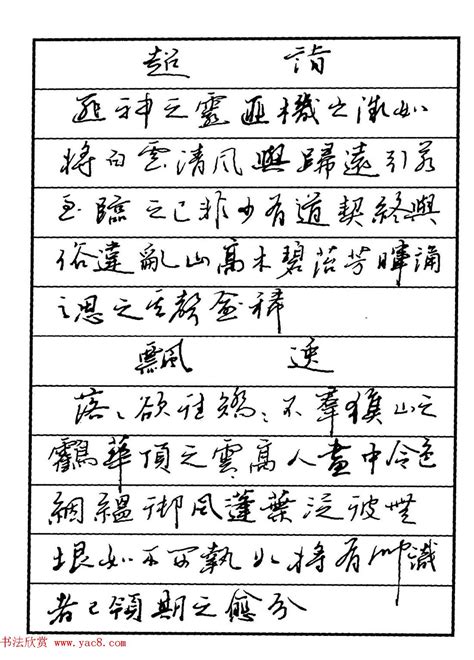 超 詣
匪神之靈匪機之微如
將白雲清風與歸遠引若
至臨之已非少有道契終與
俗違亂山高木碧苔芳暉誦
之思之其聲愈稀
飄 逸
落々欲往矯々不羣緱山之
鶴華頂之雲高人畫中令色
絪縕御風蓬葉泛彼無
垠如不可執如將有聞識
者已領期之愈分
书法欣赏 www.yac8.com